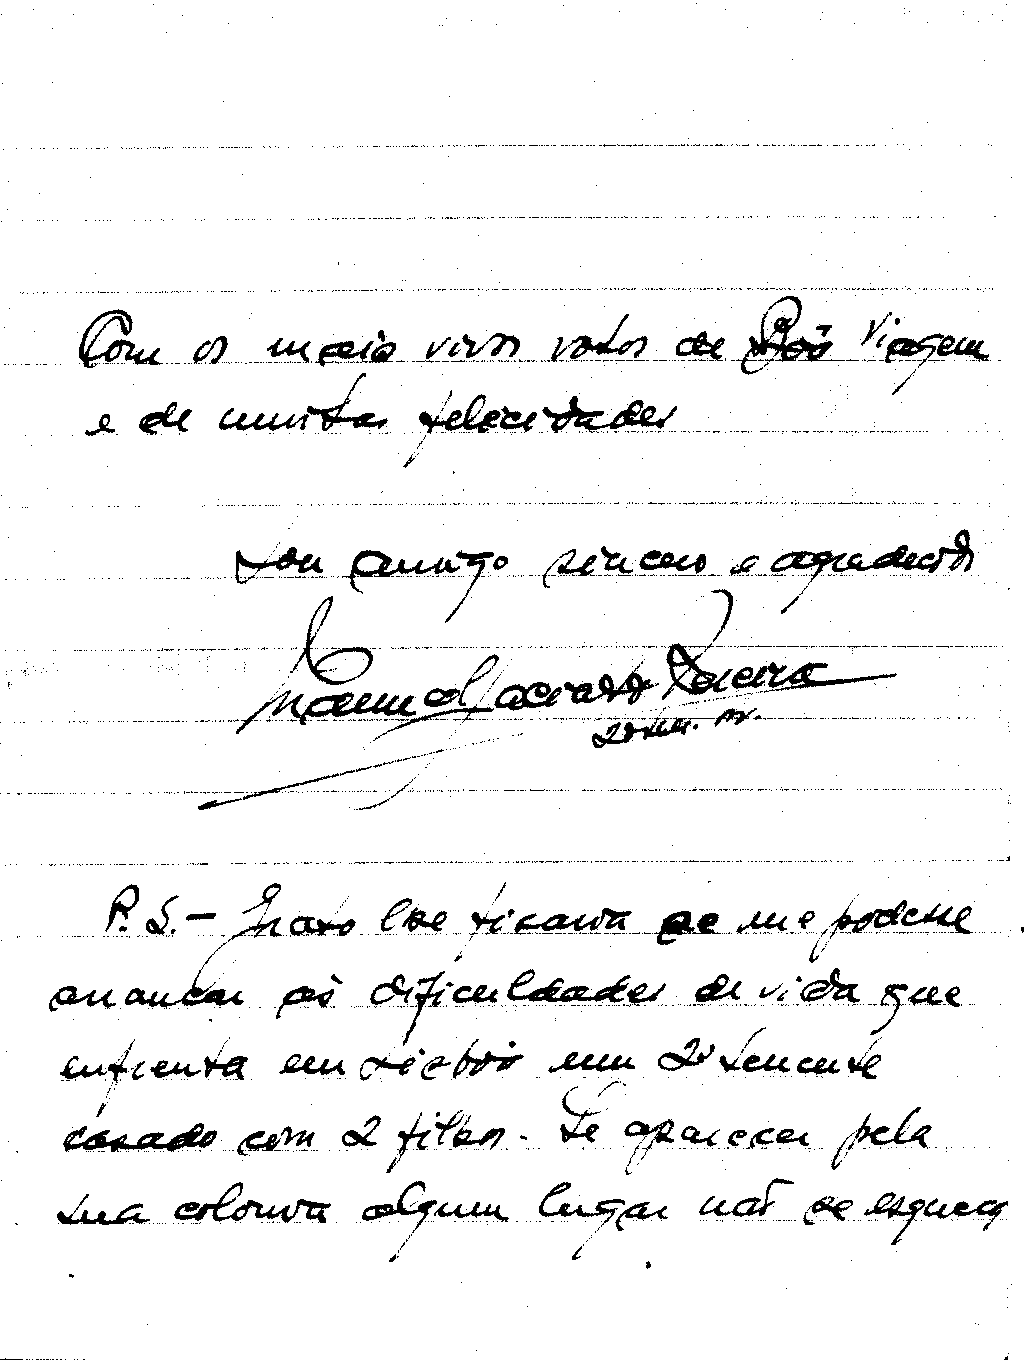 Com os mais vivos votos de Boa Viagem
e de muitas felicidades
Sou amigo sincero e agradecido
Manuel
2º ten.
P.S. - Grato lhe ficaria se me podesse
arrancar às dificuldades da vida que
enfrenta em Lisboa um 2º tenente
casado com 2 filhos. Se aparecer pela
sua colonia algum lugar não se esqueça